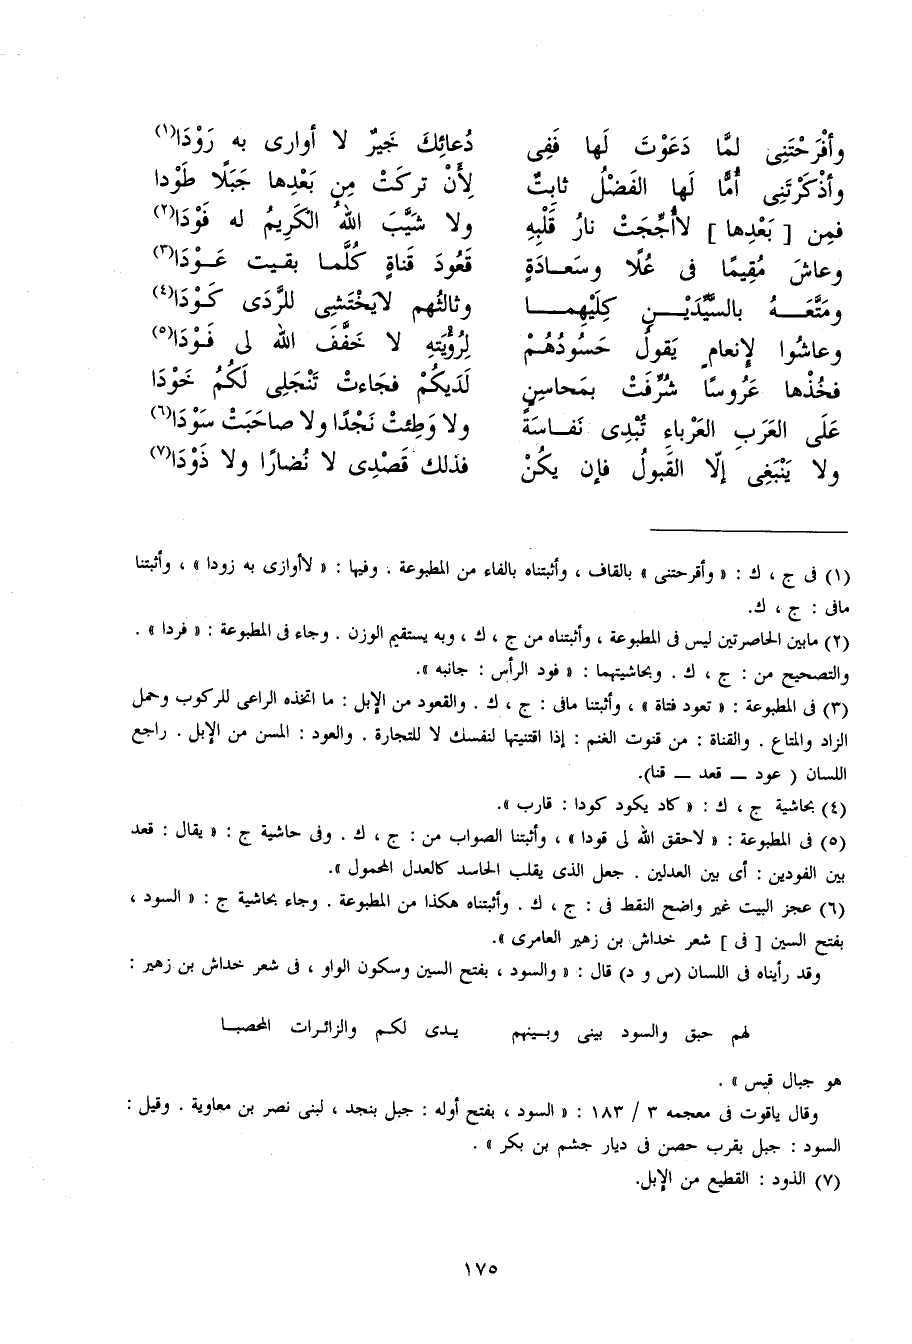 وأفْرَحْتَنِى لمَّا دَعَوْتَ لَها فَفِى دُعائِكَ خَيرٌ لا أوارى به رَوْدَا(١)
وأذْكَرْتَنِى أُمًّا لَها الفَضْلُ ثابِتٌ لِأَنْ تركَتْ مِن بَعْدِها جَبَلًا طَوْدا
فمِن [ بَعْدِها ] لاأُجِّجَتْ نارُ قَلْبِهِ ولا شَيَّبَ اللهُ الكَرِيمُ له فَوْدَا(٢)
وعاشَ مُقِيمًا فى عُلًا وسَعـادَةٍ قَعُودَ قناةٍ كُلَّمـا بقيـت عَـوْدَا(٣)
ومَتَّعَـهُ بالسَّيِّدَيْـنِ كِلَيْهِمـا وثالثُهم لايَخْتَشِى للرَّدَى كَـوْدَا(٤)
وعاشُوا لإنعامٍ يَقولُ حَسُودُهُـمْ لِرُؤْيَتِهِ لا خَفَّفَ الله لى فَـوْدَا(٥)
فخُذْها عَرُوسًا شُرِّفَتْ بمَحاسِنٍ لَدَيكُمْ فجَاءتْ تَنْجَلِى لَكُمُ خَوْدَا
عَلَى العَرَبِ العَرْباءِ تُبْدِى نَفـاسَةً ولا وَطِئتْ نَجْدًا ولا صاحَبَتْ سَوْدَا(٦)
ولا يَنْبَغِى إلّا القَبولُ فإن يكُنْ فذلك قَصْدِى لا نُضارًا ولا ذَوْدَا(٧)
(١) فى ج ، ك : « وأقرحتنى » بالقاف ، وأثبتناه بالفاء من المطبوعة . وفيها : « لاأوازى به زودا » ، وأثبتنا
مافى : ج ، ك.
(٢) مابين الحاصرتين ليس فى المطبوعة ، وأثبتناه من ج ، ك ، وبه يستقيم الوزن . وجاء فى المطبوعة : « فردا » .
والتصحيح من : ج ، ك . وبحاشيتهما : « فود الرأس : جانبه ».
(٣) فى المطبوعة : « تعود فتاة » ، وأثبتنا مافى : ج ، ك . والقعود من الإبل : ما اتخذه الراعى للركوب وحمل
الزاد والمتاع . والقناة : من قنوت الغنم : إذا اقتنيتها لنفسك لا للتجارة . والعود : المسن من الإبل . راجع
اللسان ( عود ــ قعد ــ قنا).
(٤) بحاشية ج ، ك : « كاد يكود كودا : قارب ».
(٥) فى المطبوعة : « لاحقق الله لى قودا » ، وأثبتنا الصواب من : ج ، ك . وفى حاشية ج : « يقال : قعد
بين الفودين : أى بين العدلين . جعل الذى يقلب الحاسد كالعدل المحمول ».
(٦) عجز البيت غير واضح النقط فى : ج ، ك . وأثبتناه هكذا من المطبوعة . وجاء بحاشية ج : « السود ،
بفتح السين [ فى ] شعر خداش بن زهير العامرى ».
وقد رأيناه فى اللسان (س و د) قال : « والسود ، بفتح السين وسكون الواو ، فى شعر خداش بن زهير :
لهم حبق والسود بينى وبـينهم يـدى لكـم والزائـرات المحصبـا
هو جبال قيس » .
وقال ياقوت فى معجمه ٣ / ١٨٣ : « السود ، بفتح أوله : جبل بنجد ، لبنى نصر بن معاوية . وقيل :
السود : جبل بقرب حصن فى ديار جشم بن بكر » .
(٧) الذود : القطيع من الإبل.
١٧٥